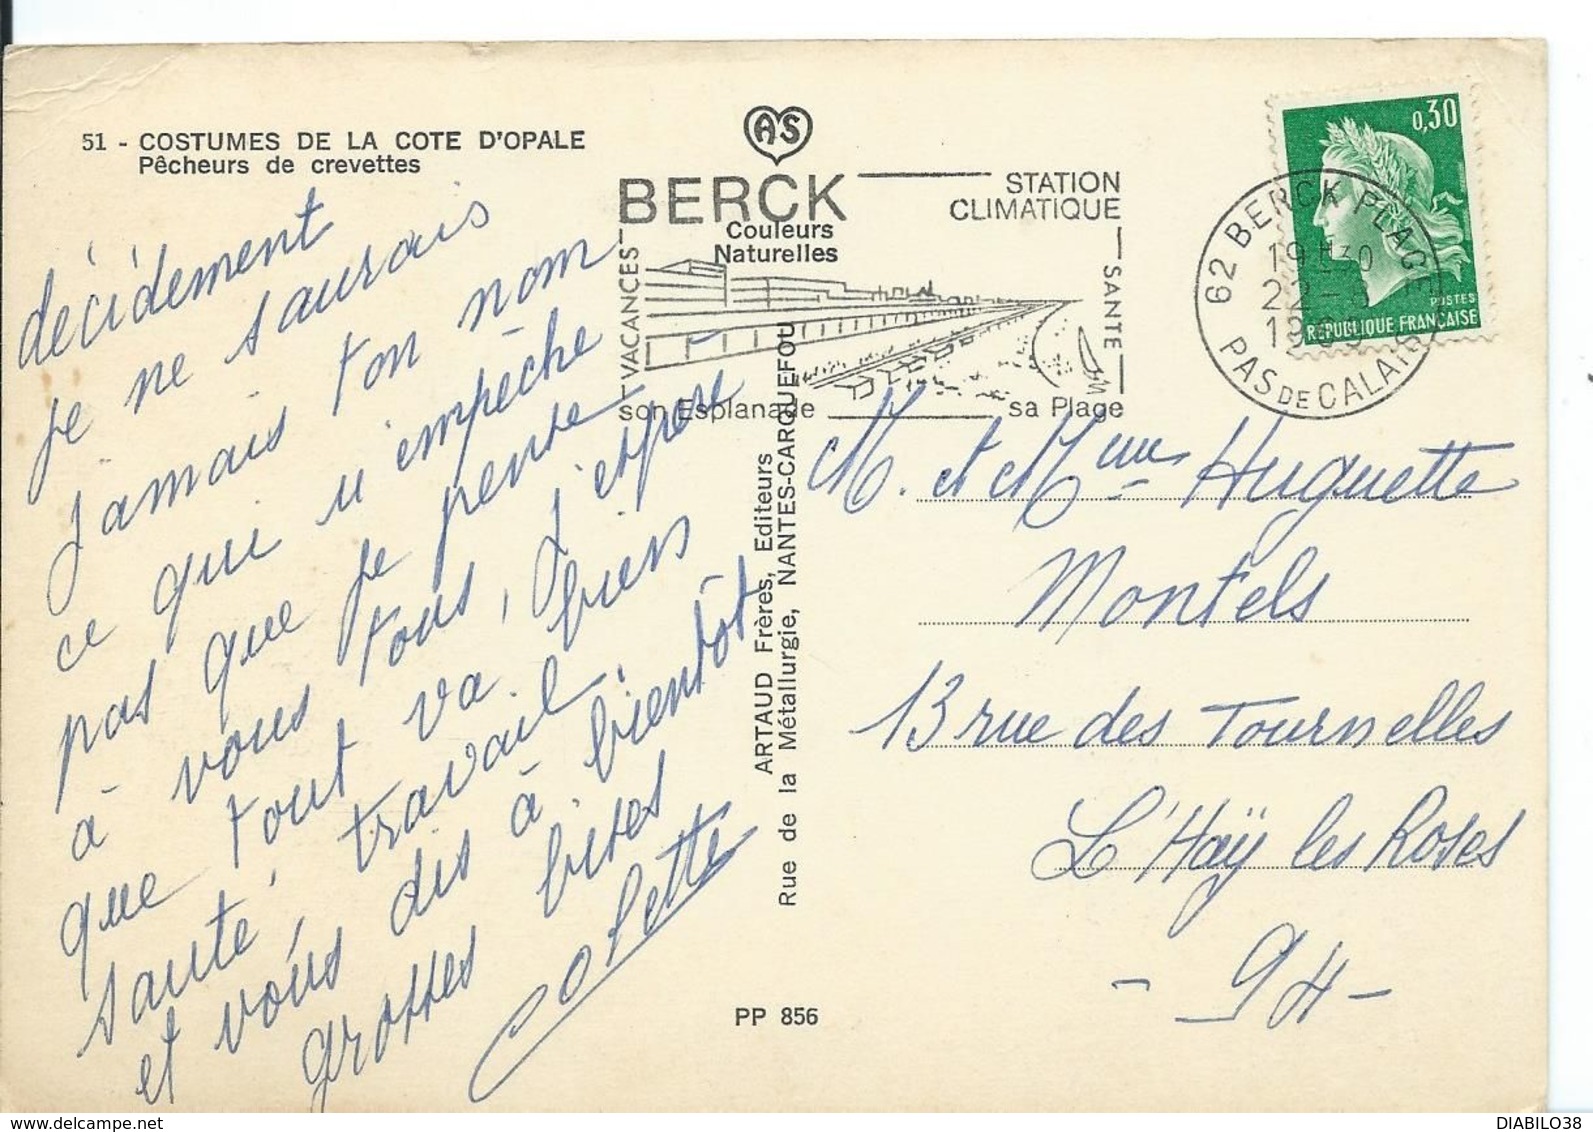 51 - COSTUMES DE LA COTE D'OPALE
Pêcheurs de crevettes
décidement
je ne saurais
jamais ton nom
ce qui n'empêche
pas que je pense
à vous tous, j'espère
que tout va bien
santé, travail.
et vous dis à bientôt
grosses bises
Colette
AS
BERCK
Couleurs
Naturelles
STATION
CLIMATIQUE
VACANCES
SANTE
son Esplanade
sa Plage
ARTAUD Frères, Editeurs
Rue de la Métallurgie, NANTES-CARQUEFOU
PP 856
0,30
POSTES
REPUBLIQUE FRANÇAISE
62 BERCK PLAGE
19H30
22-8
PAS DE CALAIS
M. et Mme Huguette
Montels
13 rue des Tournelles
L'Haÿ les Roses
- 94 -
DIABILO38